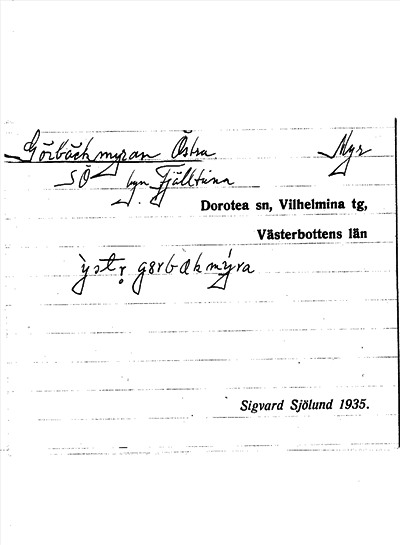 Görbäckmyran Östra Myr
SÖ byn Fjälltuna
Dorotea sn, Vilhelmina tg,
Västerbottens län
ỳstr̥ gərbækmýra
Sigvard Sjölund 1935.